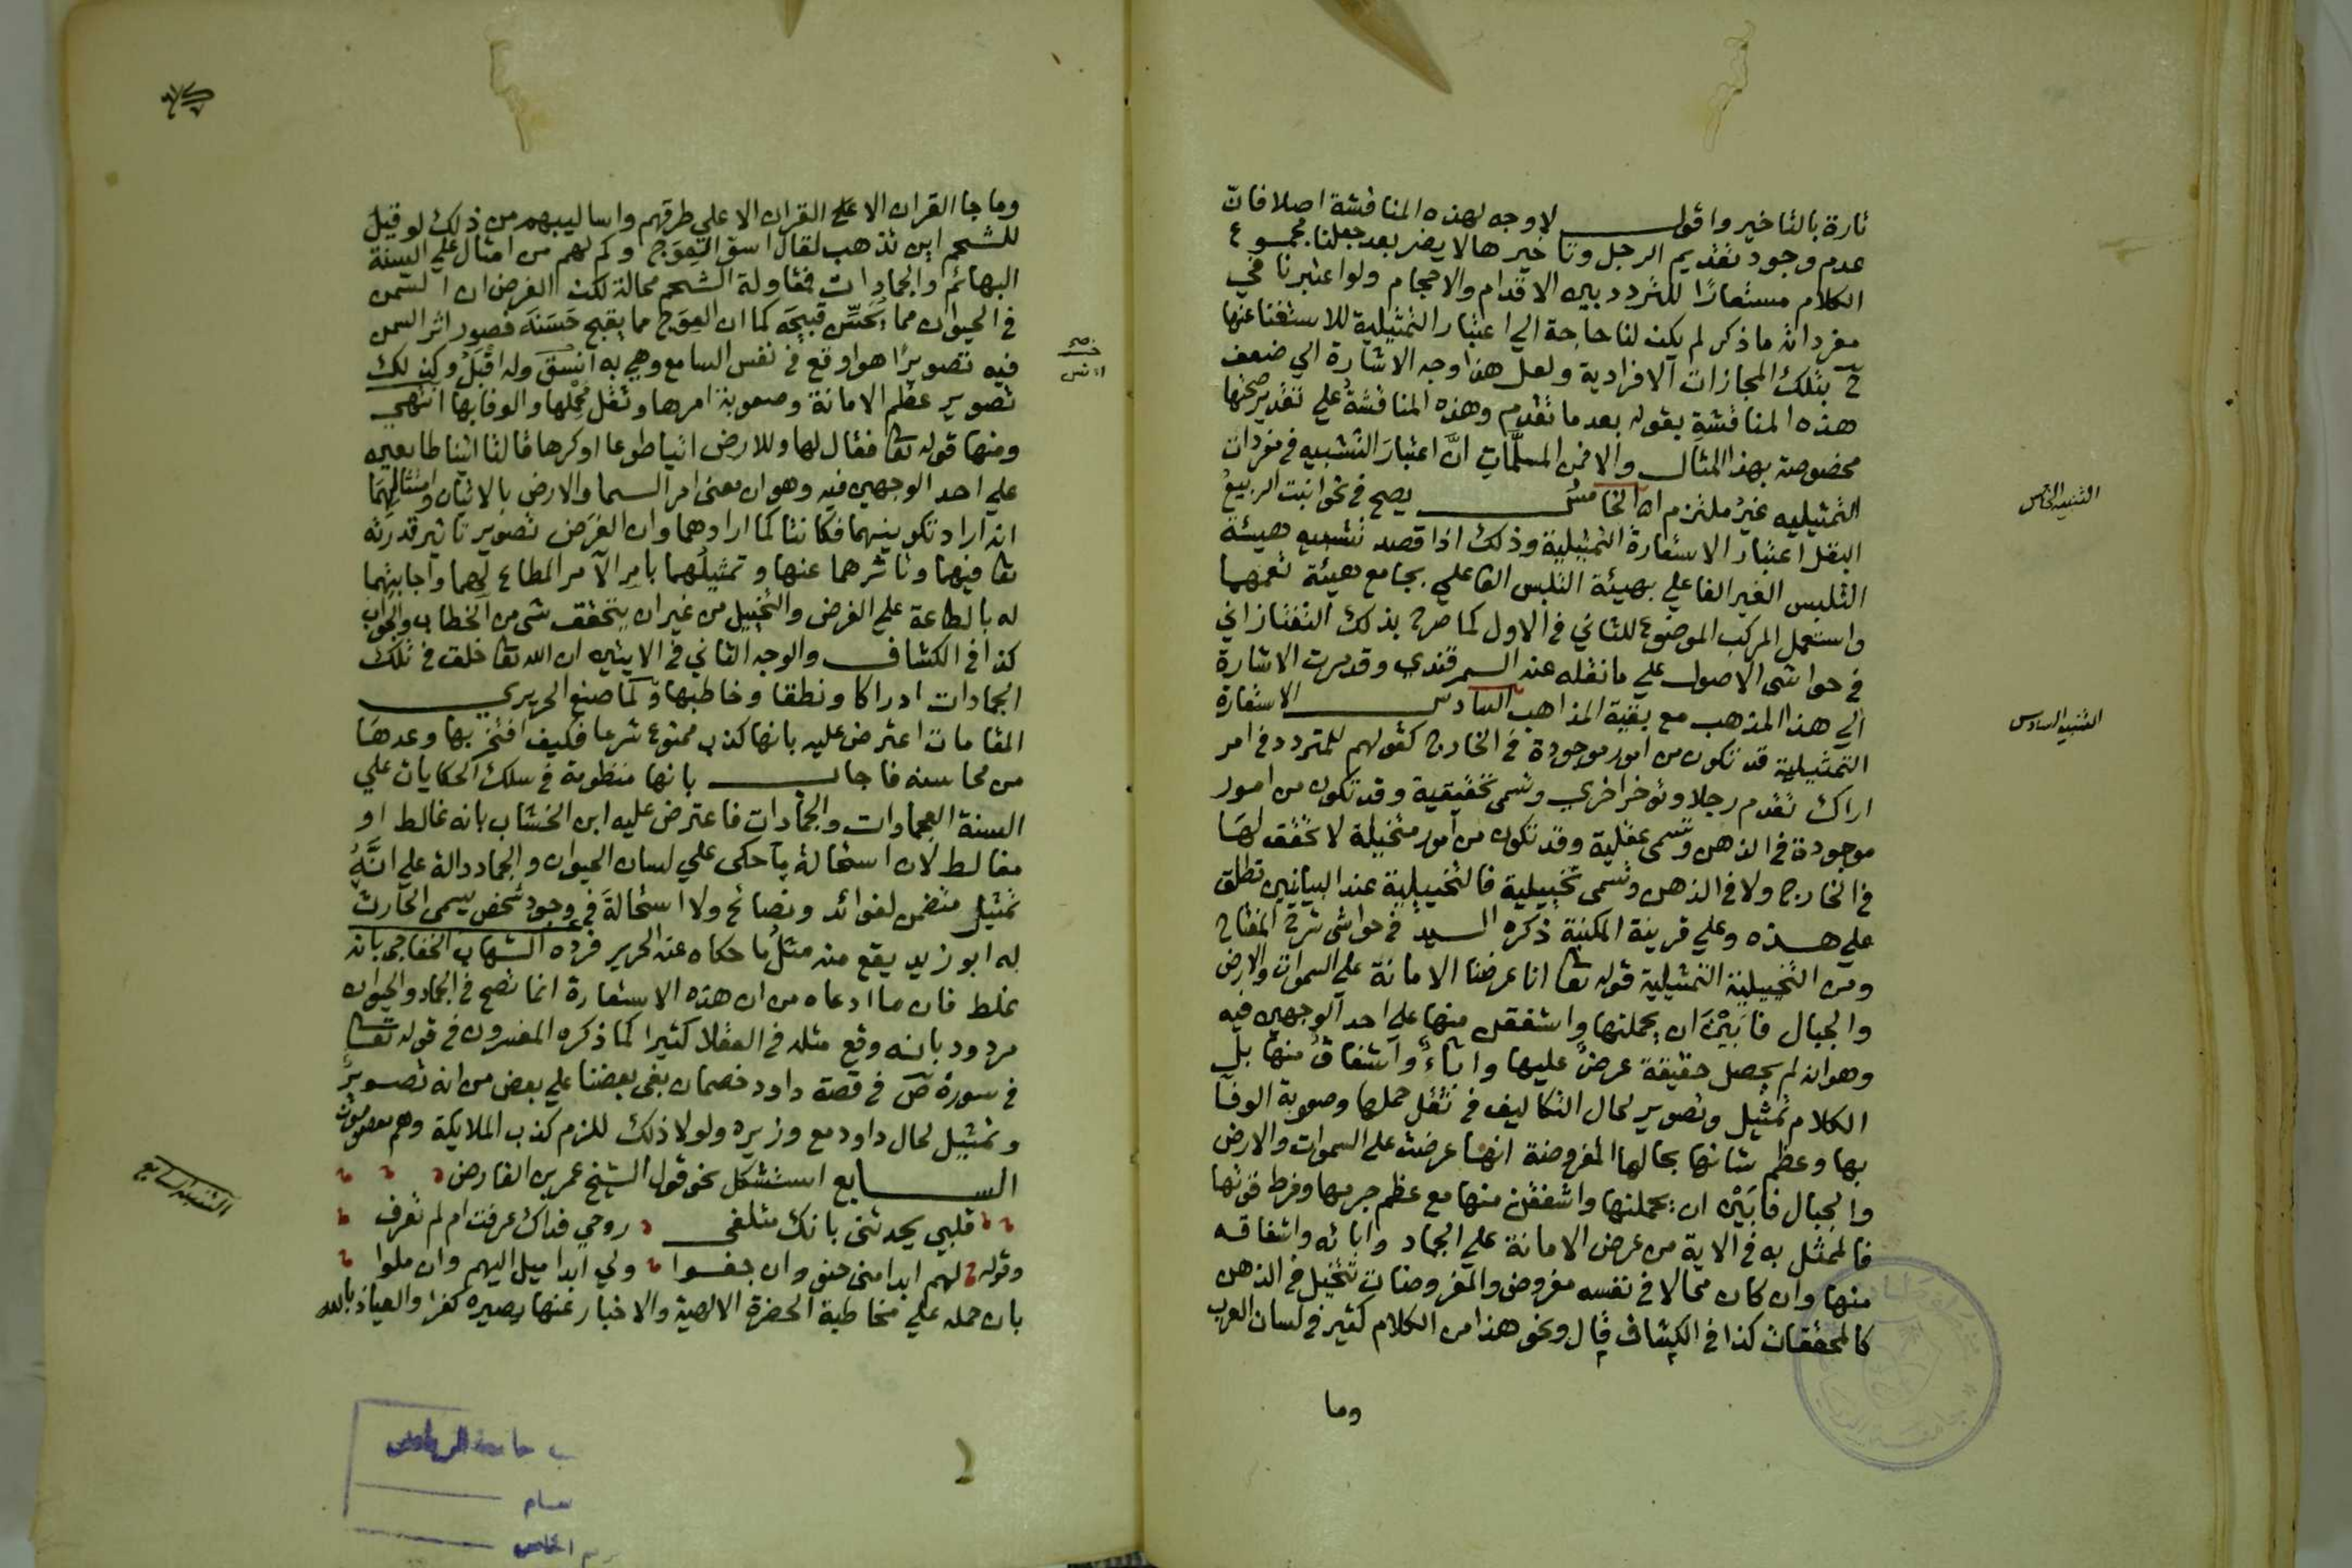 تارة بالتاخير واقول لا وجه لهذه المناقشة اصلا فان
عدم وجود تقديم الرجل وتاخيرها لا يضر بعد جعلنا مجموع
الكلام مستعارًا للتردد بين الاقدام والاحجام ولو اعتبرنا في
مفرداته ما ذكر لم يكن لنا حاجة الي اعتبار التمثيلية للاستغنا عنها
ح بتلك المجازات الافرادية ولعل هذا وجه الاشارة الي ضعف
هذه المناقشةِ بقوله بعد ما تقدم وهذه المناقشةُ علي تقدير صحتها
مخصوصة بهذا المثال والا فمن المسلَّماتِ انَّ اعتبارَ التشبيه في مفردات
التمثيليه غيرُ ملتزم اه الخامس يصح في نحو انبت الربيعُ
البقل اعتبار الاستعارة التمثيلية وذلك اذا قصد تشبيه هيئة
التلبس الغير الفاعلي بهيئة التلبس الفاعلي بجامع هيئة تعمهما
واستعمل المركب الموضوع للثاني في الاول كما صرح بذلك التفتازاني
في حواشي الاصول علي ما نقله عنه السمرقندي وقد مرت الاشارة
الي هذا المذهب مع بقية المذاهب السادس الاستعارة
التمثيلية قد تكون من امور موجودة في الخارج كقولهم للمتردد في امر
اراك تقدم رجلا وتوخر اخري وتسمى تحقيقية وقد تكون من امور
موجودة في الذهن وتسمى عقلية وقد تكون من امور متخيلة لا تحقق لها
في الخارج ولا في الذهن وتسمى تخييلية فالتخييلية عند البيانيين تطلق
علي هذه وعلي قرينة المكنية ذكره السيد في حواشي شرح المفتاح
ومن التخييلية التمثيلية قوله تعا انا عرضنا الامانة علي السموات والارض
والجبال فابَيْنَ ان يحملنها واشفقن منها علي احد الوجهين فيه
وهو انه لم يحصل حقيقة عرضٌ عليها واباءٌ واشفاقٌ منها بل
الكلام تمثيل وتصوير لحال التكاليف في ثقل حملها وصعوبة الوفا
بها وعظم شانها بحالها المفروضة انها عرضت علي السموات والارض
والجبال فابَيْن ان يحملنها واشفقن منها مع عظم جرمها وفرط قوتها
فالممثل به في الاية من عرض الامانة علي الجماد وابائه واشفاقه
منها وان كان محالا في نفسه مفروض والمفروضات تتخيل في الذهن
كالمحققات كذا في الكشاف قال ونحو هذا من الكلام كثير في لسان العرب
وما
التنبيه الخامس
التنبيه السادس
وما جا القران الا على القران الا علي طرقهم واساليبهم من ذلك لو قيل
للشحم اين تذهب لقال اسوّ العِوَج وكم لهم من امثال علي السنة
البهائم والجمادات فمقاولة الشحم محالة لكن الغرض ان السمن
في الحيوان مما يُحسِّن قبيحَه كما ان العِوَج مما يقبح حَسَنَه فصور اثر السمن
فيه تصويرًا هو اوقع في نفس السامع وهي به انسق وله اقبَلُ وكذلك
تصوير عظم الامانة وصعوبة امرها وثقل محْملها والوفا بها انتهي
ومنها قوله تعا فقال لها وللارض ائتيا طوعا او كرها قالتا اتينا طايعين
علي احد الوجهين فيه وهو ان معنى امر السما والارض بالاتيان وامتثالهما
انه اراد تكوينهما فكانتا كما ارادهما وان الغرَض تصوير تاثير قدرته
تعا فيهما وتاثرهما عنها وتمثيلُهما بامر الآمر المطاع لهما واجابتهما
له بالطاعة علي الفرض والتخييل من غير ان يتحقق شي من الخطاب والجواب
كذا في الكشاف والوجه الثاني في الايتين ان الله تعا خلق في تلك
الجمادات ادراكا ونطقا وخاطبها ولما صنع الحريري
المقامات اعترض عليه بانها كذب ممنوع شرعا فكيف افتخر بها وعدها
من محاسنه فاجاب بانها منظومة في سلك الحكايات علي
السنة العجماوات والجمادات فاعترض عليه ابن الخشاب بانه غالط او
مغالط لان استحالة ما حكى علي لسان الحيوان والجماد دالة علي انَّهُ
تمثيل متضمن لفوائد ونصائح ولا استحالةَ في وجود شخص يسمى الحارث
له ابو زيد يقع منه مثلُ ما حكاه عنه الحرير فردَّه الشهاب الخفاجي بانه
غلط فان ما ادعاه من ان هذه الاستعارة انما تصح في الجماد والحيوان
مردود بانه وقع مثله في العقلا كثيرا كما ذكره المفسرون في قوله تعا
في سورة ص في قصة داود خصمان بغى بعضنا علي بعض من انه تصويرٌ
وتمثيل لحال داود مع وزيره ولولا ذلك للزم كذب الملايكة وهم معصومون
السابع استشكل نحو قول الشيخ عمر بن الفارض
قلبي يحدثني بانك متلفي روحي فداك عرفت ام لم تعرف
وقوله لهم ابدا مني حنو وان جفوا ولي ابدا ميل اليهم وان ملوا
بان حمله علي مخاطبة الحضرة الالهية والاخبار عنها يصيره كفرا والعياذ بالله
التنبيه السابع